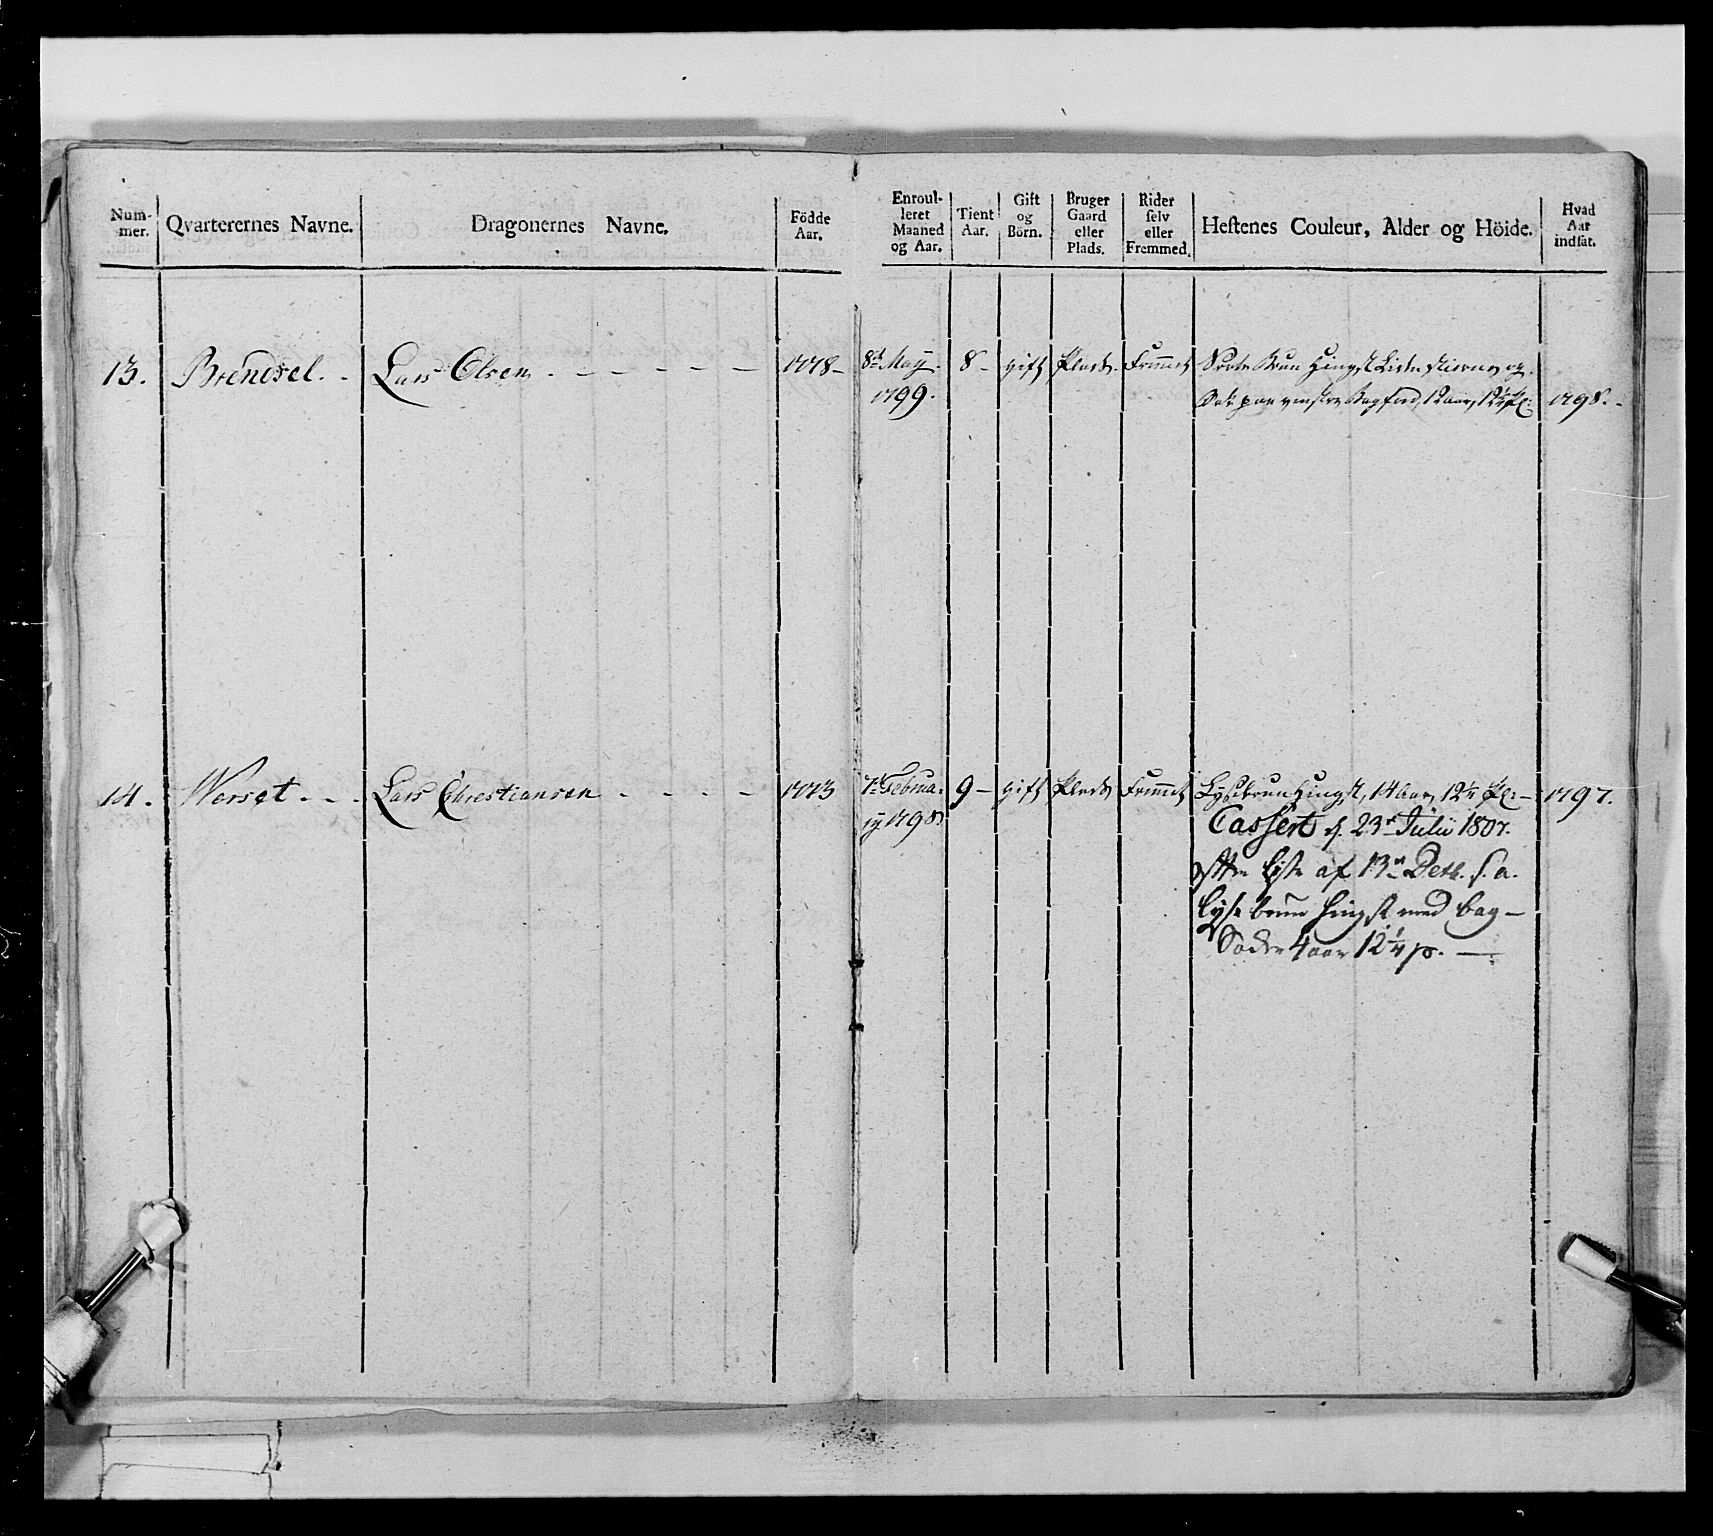 Num-
mer.
Qvarterernes Navne.
Dragonernes Navne.
Födde
Aar.
Enroul-
leret
Maaned
og Aar.
Tient
Aar.
Gift
og
Börn.
Bruger
Gaard
eller
Plads.
Rider
selv
eller
Fremmed.
Hestenes Couleur, Alder og Höide.
Hvad
Aar
indsat.
13. Brendsel. Lars Olsen 1778 8de Maÿ 8 gift Plads Fremmed
1799. paa venstre Bagfod, 12 aar, 1798.
14. Worset Lars Chrestiansen 1773 7de Februa- 9 gift Plads Fremmed Lÿsebrun Hingst, 14 aar, 12 1/4 1797.
rÿ 1798
Cassert d. 23de Julii 1807.
efter Liste af 13de s. a.
lÿse brun hingst med bag-
Sokker 4 aar 12 1/4 p.